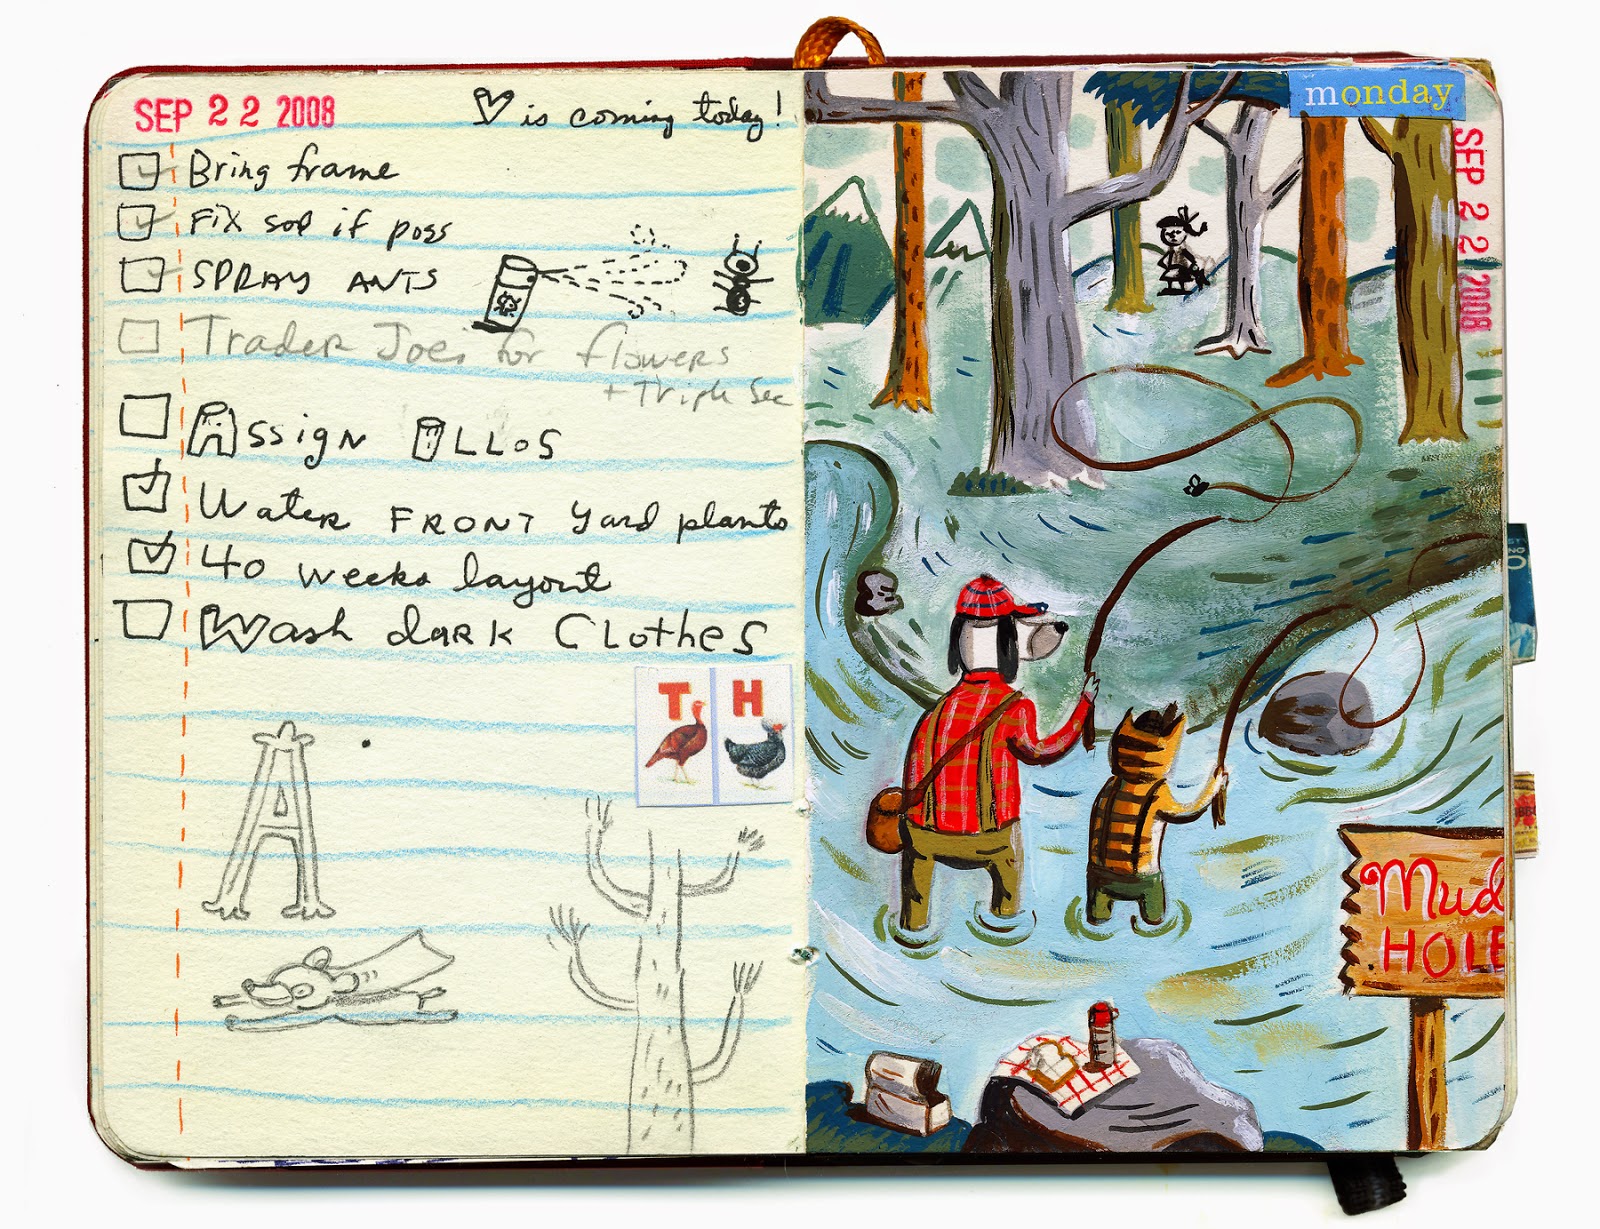 SEP 22 2008
♡ is coming today!
Bring frame
Fix sol if poss
SPRAY ANTS
Trader Joes for flowers
+ Triple Sec
Assign OLLOS
Water FRONT Yard plants
40 weeks layout
Wash dark Clothes
T H
A
monday
SEP 22 2008
Mud
HOLE